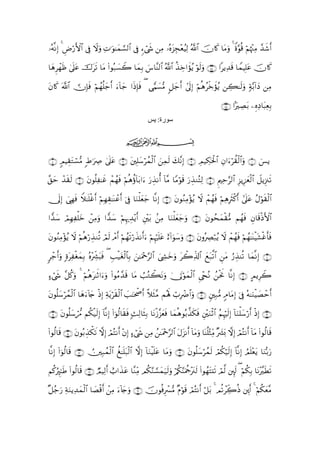 أَشَدَّ مِنْهُمْ قُوَّةً ۚ وَمَا كَانَ ٱللَّهُ لِيُعْجِزَهُۥ مِن شَىْءٍ فِى ٱلسَّمَٰوَٰتِ وَلَا فِى ٱلْأَرْضِ ۚ إِنَّهُۥ
كَانَ عَلِيمًا قَدِيرًا ﴿٤٤﴾ وَلَوْ يُؤَاخِذُ ٱللَّهُ ٱلنَّاسَ بِمَا كَسَبُوا۟ مَا تَرَكَ عَلَىٰ ظَهْرِهَا
مِن دَآبَّةٍ وَلَٰكِن يُؤَخِّرُهُمْ إِلَىٰٓ أَجَلٍ مُّسَمًّى ۖ فَإِذَا جَآءَ أَجَلُهُمْ فَإِنَّ ٱللَّهَ كَانَ
بِعِبَادِهِۦ بَصِيرًۢا ﴿٤٥﴾
سورة: يس
بِسْمِ ٱللَّهِ ٱلرَّحْمَٰنِ ٱلرَّحِيمِ
يسٓ ﴿١﴾ وَٱلْقُرْءَانِ ٱلْحَكِيمِ ﴿٢﴾ إِنَّكَ لَمِنَ ٱلْمُرْسَلِينَ ﴿٣﴾ عَلَىٰ صِرَٰطٍ مُّسْتَقِيمٍ ﴿٤﴾
تَنزِيلَ ٱلْعَزِيزِ ٱلرَّحِيمِ ﴿٥﴾ لِتُنذِرَ قَوْمًا مَّآ أُنذِرَ ءَابَآؤُهُمْ فَهُمْ غَٰفِلُونَ ﴿٦﴾ لَقَدْ حَقَّ
ٱلْقَوْلُ عَلَىٰٓ أَكْثَرِهِمْ فَهُمْ لَا يُؤْمِنُونَ ﴿٧﴾ إِنَّا جَعَلْنَا فِىٓ أَعْنَٰقِهِمْ أَغْلَٰلًا فَهِىَ إِلَى
ٱلْأَذْقَانِ فَهُم مُّقْمَحُونَ ﴿٨﴾ وَجَعَلْنَا مِنۢ بَيْنِ أَيْدِيهِمْ سَدًّا وَمِنْ خَلْفِهِمْ سَدًّا
فَأَغْشَيْنَٰهُمْ فَهُمْ لَا يُبْصِرُونَ ﴿٩﴾ وَسَوَآءٌ عَلَيْهِمْ ءَأَنذَرْتَهُمْ أَمْ لَمْ تُنذِرْهُمْ لَا يُؤْمِنُونَ
﴿١٠﴾ إِنَّمَا تُنذِرُ مَنِ ٱتَّبَعَ ٱلذِّكْرَ وَخَشِىَ ٱلرَّحْمَٰنَ بِٱلْغَيْبِ ۖ فَبَشِّرْهُ بِمَغْفِرَةٍ وَأَجْرٍ
كَرِيمٍ ﴿١١﴾ إِنَّا نَحْنُ نُحْىِ ٱلْمَوْتَىٰ وَنَكْتُبُ مَا قَدَّمُوا۟ وَءَاثَٰرَهُمْ ۚ وَكُلَّ شَىْءٍ
أَحْصَيْنَٰهُ فِىٓ إِمَامٍ مُّبِينٍ ﴿١٢﴾ وَٱضْرِبْ لَهُم مَّثَلًا أَصْحَٰبَ ٱلْقَرْيَةِ إِذْ جَآءَهَا ٱلْمُرْسَلُونَ
﴿١٣﴾ إِذْ أَرْسَلْنَآ إِلَيْهِمُ ٱثْنَيْنِ فَكَذَّبُوهُمَا فَعَزَّزْنَا بِثَالِثٍ فَقَالُوٓا۟ إِنَّآ إِلَيْكُم مُّرْسَلُونَ ﴿١٤﴾
قَالُوا۟ مَآ أَنتُمْ إِلَّا بَشَرٌ مِّثْلُنَا وَمَآ أَنزَلَ ٱلرَّحْمَٰنُ مِن شَىْءٍ إِنْ أَنتُمْ إِلَّا تَكْذِبُونَ ﴿١٥﴾ قَالُوا۟
رَبُّنَا يَعْلَمُ إِنَّآ إِلَيْكُمْ لَمُرْسَلُونَ ﴿١٦﴾ وَمَا عَلَيْنَآ إِلَّا ٱلْبَلَٰغُ ٱلْمُبِينُ ﴿١٧﴾ قَالُوٓا۟ إِنَّا
تَطَيَّرْنَا بِكُمْ ۖ لَئِن لَّمْ تَنتَهُوا۟ لَنَرْجُمَنَّكُمْ وَلَيَمَسَّنَّكُم مِّنَّا عَذَابٌ أَلِيمٌ ﴿١٨﴾ قَالُوا۟ طَٰٓئِرُكُم
مَّعَكُمْ ۚ أَئِن ذُكِّرْتُم ۚ بَلْ أَنتُمْ قَوْمٌ مُّسْرِفُونَ ﴿١٩﴾ وَجَآءَ مِنْ أَقْصَا ٱلْمَدِينَةِ رَجُلٌ